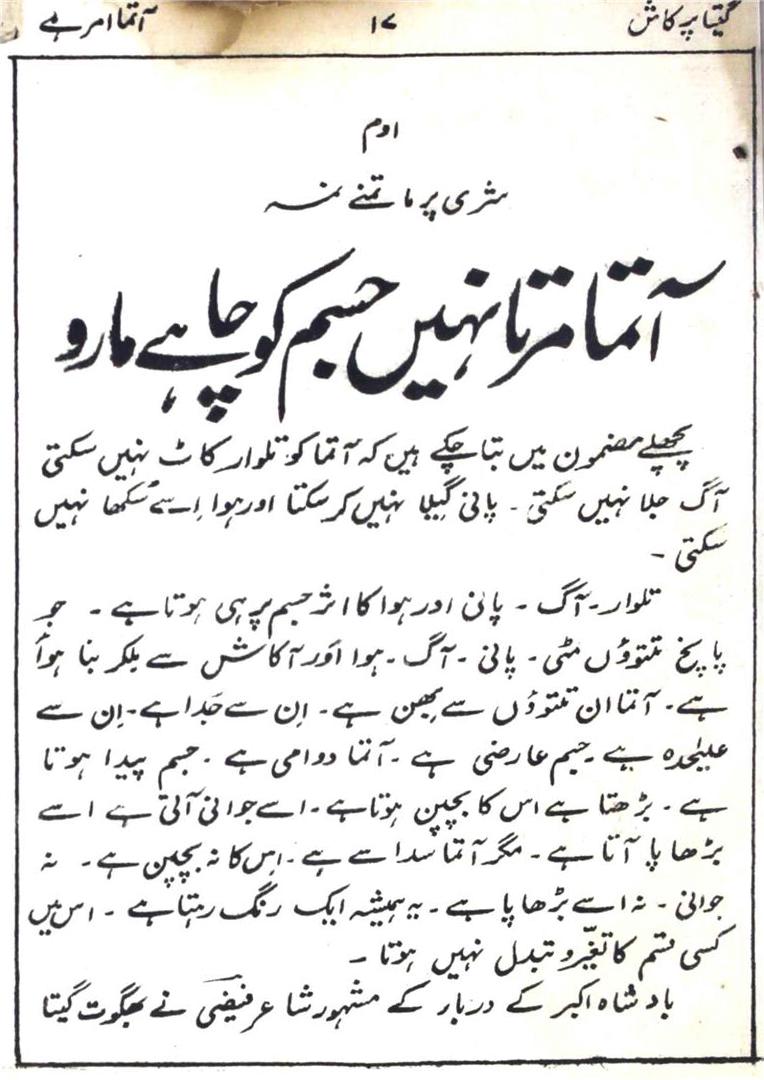 گیتا پرکاش ۱۷ آتما امر ہے
اوم
شری پرماتمنے نمہ
آتما مرتا نہیں جسم کو چاہے مارو
پچھلے مضمون میں بتا چکے ہیں کہ آتما کو تلوار کاٹ نہیں سکتی
آگ جلا نہیں سکتی ۔ پانی گیلا نہیں کر سکتا اور ہوا اِسے سُکھا نہیں
سکتی ۔
تلوار ۔ آگ ۔ پانی اور ہوا کا اثر جسم پر ہی ہوتا ہے ۔ جو
پانچ تتوؤں مٹی ۔ پانی ۔ آگ ۔ ہوا اور آکاش سے ملکر بنا ہوأ
ہے ۔ آتما ان تتوؤں سے بھِن ہے ۔ اِن سے جُدا ہے ۔ اِن سے
علیٰحدہ ہے ۔ جسم عارضی ہے ۔ آتما دوامی ہے ۔ جسم پیدا ہوتا
ہے ۔ بڑھتا ہے اس کا بچپن ہوتا ہے ۔ اسے جوانی آتی ہے اسے
بڑھاپا آتا ہے ۔ مگر آتما سدا سے ہے ۔ اِس کا نہ بچپن ہے ۔ نہ
جوانی ۔ نہ اسے بڑھاپا ہے ۔ یہ ہمیشہ ایک رنگ رہتا ہے ۔ اس میں
کسی قسم کا تغیّر و تبدل نہیں ہوتا ۔
بادشاہ اکبر کے دربار کے مشہور شاعر فیضیؔ نے بھگوت گیتا